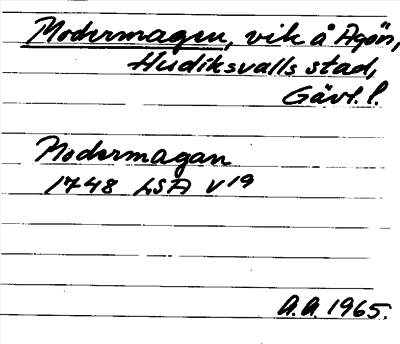 Modermagen, vik å Agön,
Hudiksvalls stad,
Gävl. l.
Modermagan
1748 LSA V19
A.A. 1965.